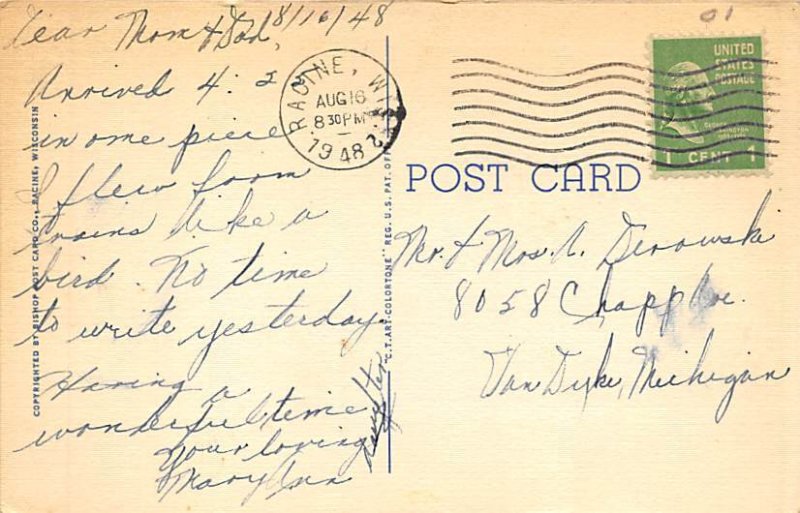 8/16/48
Dear Mom & Dad,
Arrived 4:22
in one piece
I flew from
trains like a
bird. No time
to write yesterday.
Having a
wonderful time
Your loving
daughter
Mary Ann
COPYRIGHTED BY BISHOP POST CARD CO., RACINE, WISCONSIN
"C.T. ART-COLORTONE" REG. U.S. PAT. OFF.
RACINE, WIS.
AUG 16
8 30 PM
1948
2
POST CARD
01
UNITED
STATES
POSTAGE
1 CENT 1
Mr. & Mrs. A. Derowski
8058 Chapp Ave.
Van Dyke, Michigan